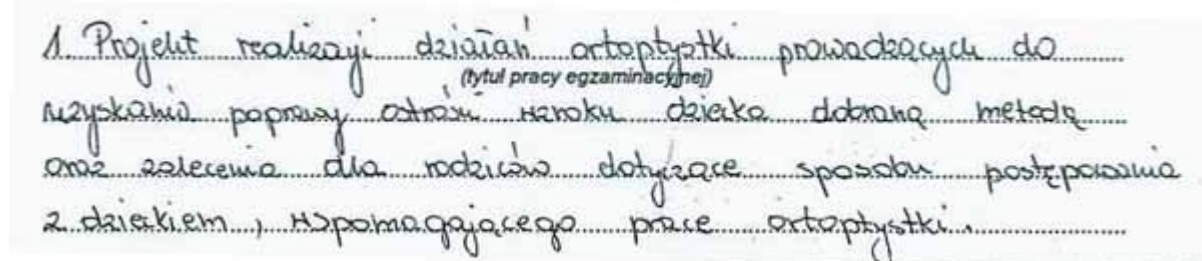 1. Projekt realizacji działań ortoptystki prowadzących do
(tytuł pracy egzaminacyjnej)
uzyskania poprawy ostrości wzroku dziecka dobraną metodą
oraz zalecenia dla rodziców dotyczące sposobu postępowania
z dzieckiem, wspomagającego pracę ortoptystki.